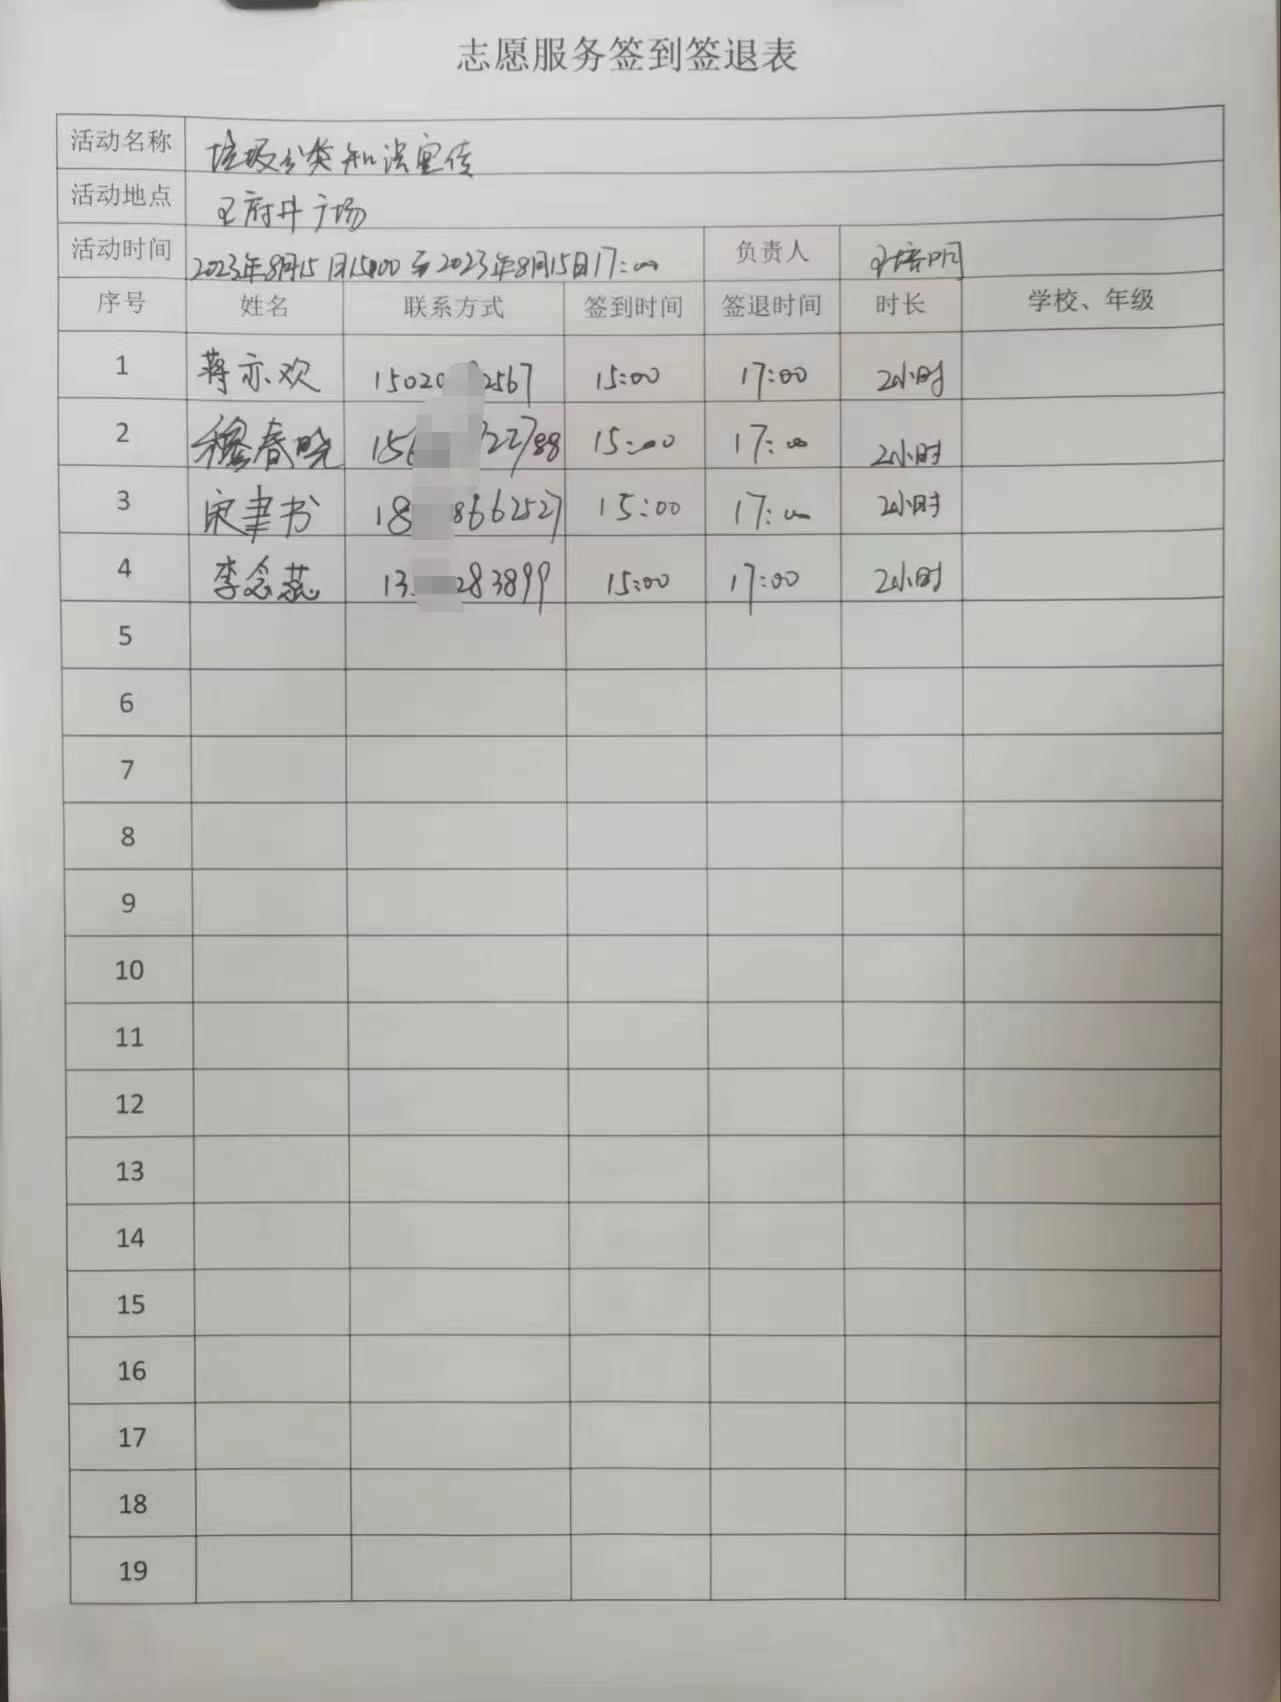 志愿服务签到签退表
活动名称 垃圾分类知识宣传
活动地点 王府井广场
活动时间 2023年8月15日15:00至2023年8月15日17:00 负责人 王培明
序号 姓名 联系方式 签到时间 签退时间 时长 学校、年级
1 蒋亦欢 15020 2567 15:00 17:00 2小时
2 穆春晓 15 22788 15:00 17:00 2小时
3 宋聿书 18 8662527 15:00 17:00 2小时
4 李念蕊 13 283899 15:00 17:00 2小时
5
6
7
8
9
10
11
12
13
14
15
16
17
18
19